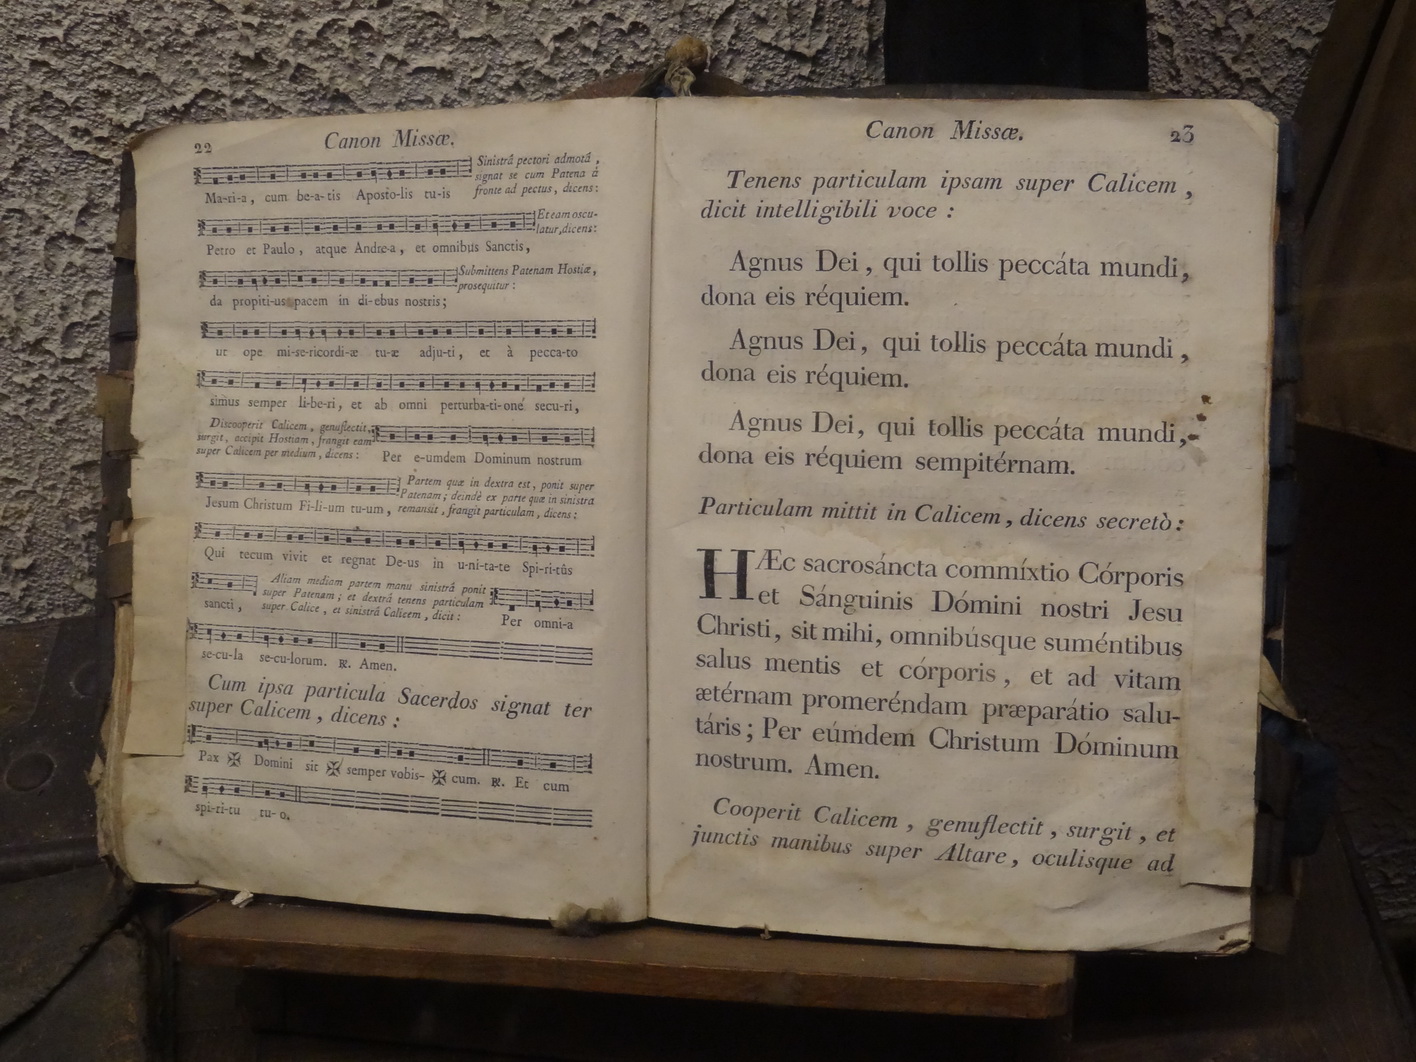 22
Canon Missæ.
Sinistrâ pectori admotâ,
signat se cum Patena à
fronte ad pectus, dicens:
Ma-ri-a, cum be-a-tis Aposto-lis tu-is
Et eam oscu-
latur, dicens:
Petro et Paulo, atque Andre-a, et omnibus Sanctis,
Submittens Patenam Hostiæ,
prosequitur:
da propiti-us pacem in di-ebus nostris;
ut ope mi-se-ricordi-æ tu-æ adju-ti, et à pecca-to
simus semper li-be-ri, et ab omni perturba-ti-one secu-ri,
Discooperit Calicem, genuflectit,
surgit, accipit Hostiam, frangit eam
super Calicem per medium, dicens:
Per e-umdem Dominum nostrum
Partem quæ in dextra est, ponit super
Patenam; deindè ex parte quæ in sinistra
remansit, frangit particulam, dicens:
Jesum Christum Fi-li-um tu-um,
Qui tecum vivit et regnat De-us in u-ni-ta-te Spi-ri-tûs
Aliam mediam partem manu sinistrâ ponit
super Patenam; et dextrâ tenens particulam
super Calice, et sinistrâ Calicem, dicit:
sancti,
Per omni-a
se-cu-la se-cu-lorum. ℟. Amen.
Cum ipsa particula Sacerdos signat ter
super Calicem, dicens:
Pax ✠ Domini sit ✠ semper vobis- ✠ cum. ℟. Et cum
spi-ri-tu tu-o.
Canon Missæ.
23
Tenens particulam ipsam super Calicem,
dicit intelligibili voce:
Agnus Dei, qui tollis peccáta mundi,
dona eis réquiem.
Agnus Dei, qui tollis peccáta mundi,
dona eis réquiem.
Agnus Dei, qui tollis peccáta mundi,
dona eis réquiem sempitérnam.
Particulam mittit in Calicem, dicens secretò:
HÆc sacrosáncta commíxtio Córporis
et Sánguinis Dómini nostri Jesu
Christi, sit mihi, omnibúsque suméntibus
salus mentis et córporis, et ad vitam
ætérnam promeréndam præparátio salu-
táris; Per eúmdem Christum Dóminum
nostrum. Amen.
Cooperit Calicem, genuflectit, surgit, et
junctis manibus super Altare, oculisque ad